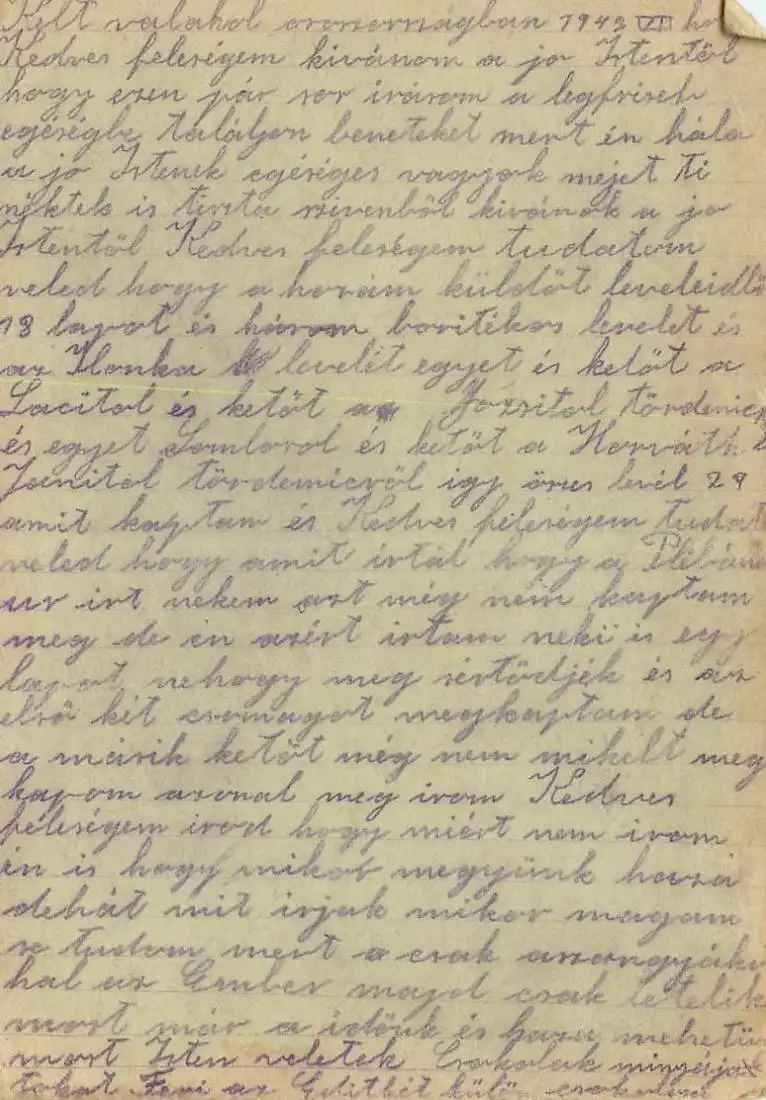 Kelt valahol oroszországban 1943 VI hó
Kedves feleségem kivánom a jo Istentöl
hogy ezen pár sor irásom a legfriseb
egéségbe találjon beneteket mert én hála
a jo Istenek egéséges vagyok mejet ti
néktek is tiszta szivenböl kivánok a jo
Istentöl Kedves feleségem tudatom
veled hogy a hozám küldöt leveleidbö
18 lapot és három boritékos levelet és
az Ilonka levelét egyet és ketöt a
Lacitol és ketöt a Józsitol
és egyet Somlorol és ketöt a Horváth
Janitol tördemicröl igy öszes levél 29
amit kaptam és Kedves feleségem tudat
veled hogy amit irtál hogy a Plébános
ur irt nekem azt még nem kaptam
meg de én azért irtam neki is egy
lapot nehogy meg sértödjék és az
elsö két csomagot megkaptam de
a másik ketöt még nem mikelt meg
kapom azonal meg irom Kedves
feleségem irod hogy miért nem irom
én is hogy mikor megyünk haza
dehát mit irjak mikor magam
se tudom mert csak
hal az Ember majd csak letelik
most már a idönk és haza mehetün
most Isten veletek Csokolak minyája
tokat Feri az Editkét külön csokolom